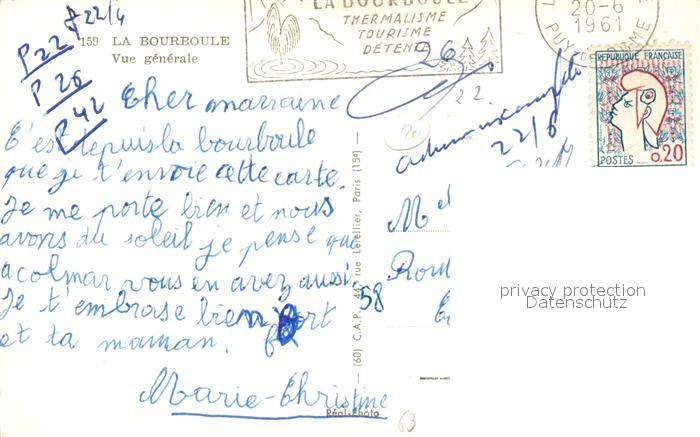 22/4
P22
P26
P42
159 LA BOURBOULE
Vue générale
LA BOURBOULE
THERMALISME
TOURISME
DETENTE
20-6
1961
PUY-DE-DOME
REPUBLIQUE FRANÇAISE
POSTES
0.20
26
22.
22/6
Cher marraine
C'est depuis la bourboule
que je t'envoie cette carte.
Je me porte bien et nous
avons du soleil je pense que
a colmar vous en avez aussi
Je t'embrase bien fort
et ta maman.
Marie-Christine
Réal-Photo
(60) C.A.P. 44, rue Letellier, Paris (15e)
M et
Rou
58
63
privacy protection
Datenschutz